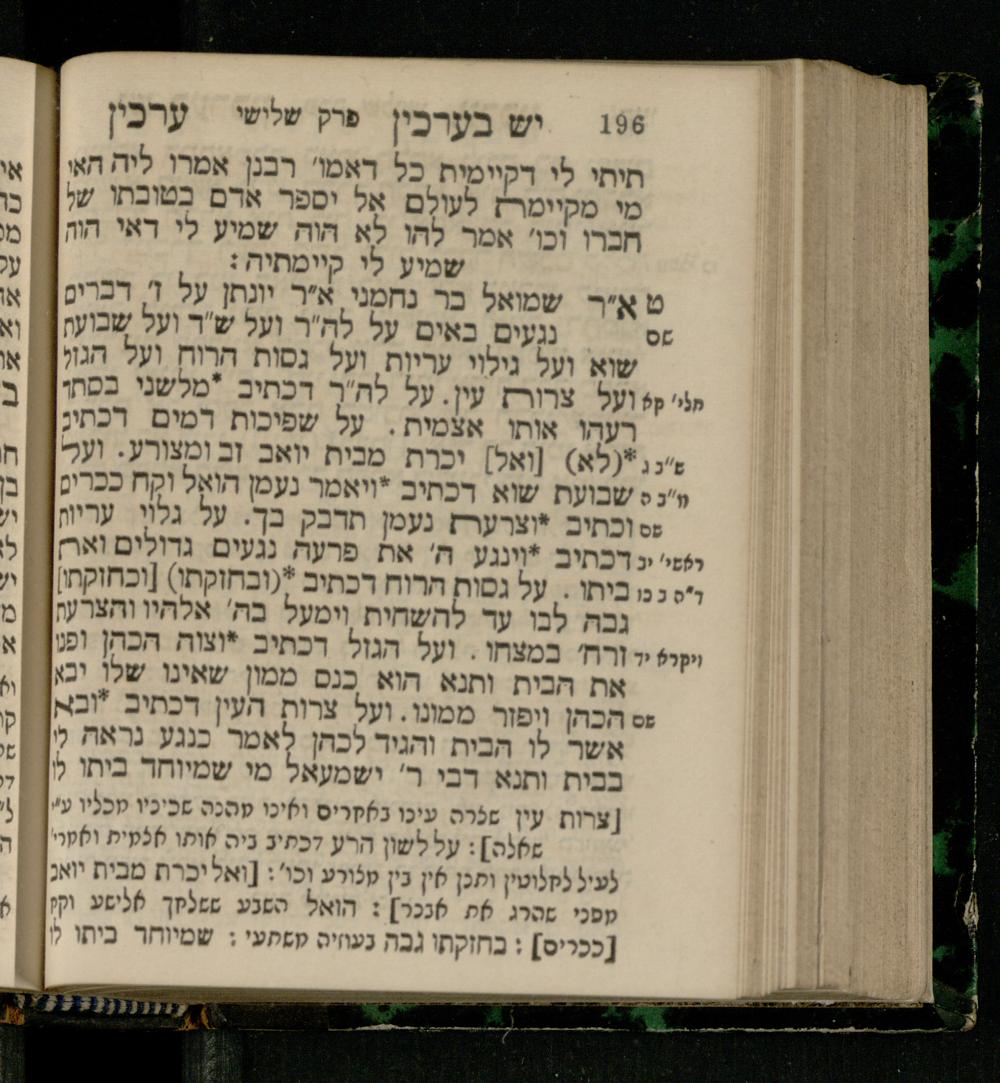 196 יש בערכין פרק שלישי ערכין
תיתי לי דקיימית כל דאמו׳ רבנן אמרו ליה האי
מי מקיימת לעולם אל יספר אדם בטובתו של
חברו וכו׳ אמר להו לא הוה שמיע לי דאי הוה
שמיע לי קיימתיה:
ט א״ר שמואל בר נחמני א״ר יונתן על ז׳ דברים
שם נגעים באים על לה״ר ועל ש״ד ועל שבועת
שוא ועל גילוי עריות ועל גסות הרוח ועל הגזל
תלי׳ קא ועל צרות עין. על לה״ר דכתיב *מלשני בסתר
רעהו אותו אצמית. על שפיכות דמים דכתיב
ש״ב ג *(לא) [ואל] יכרת מבית יואב זב ומצורע. ועל
מ״ב ה שבועת שוא דכתיב *ויאמר נעמן הואל וקח ככרים
שם וכתיב *וצרעת נעמן תדבק בך. על גלוי עריות
ראשי׳ יב דכתיב *וינגע ה׳ את פרעה נגעים גדולים ואת
ד״ה ב כו ביתו. על גסות הרוח דכתיב *(ובחוקתו) [וכחזקתו]
גבה לבו עד להשחית וימעל בה׳ אלהיו והצרעת
ויקרא יד זרח׳ במצחו. ועל הגזל דכתיב *וצוה הכהן ופנו
את הבית ותנא הוא כנס ממון שאינו שלו יבא
שם הכהן ויפזר ממונו. ועל צרות העין דכתיב *ובא
אשר לו הבית והגיד לכהן לאמר כנגע נראה לי
בבית ותנא דבי ר׳ ישמעאל מי שמיוחד ביתו לו
[צרות עין שצרה עינו באחרים ואינו מהנה שכיניו מכליו ע״י
שאלה]: על לשון הרע דכתיב ביה אותו אצמית ואמרי׳
לעיל לחלוטין ותנן אין בין מצורע וכו׳: [ואל יכרת מבית יואב
מפני שהרג את אבנר]: הואל השבע ששלחך אלישע וקח
[ככרים]: בחזקתו גבה בעוזיה משתעי: שמיוחד ביתו לו